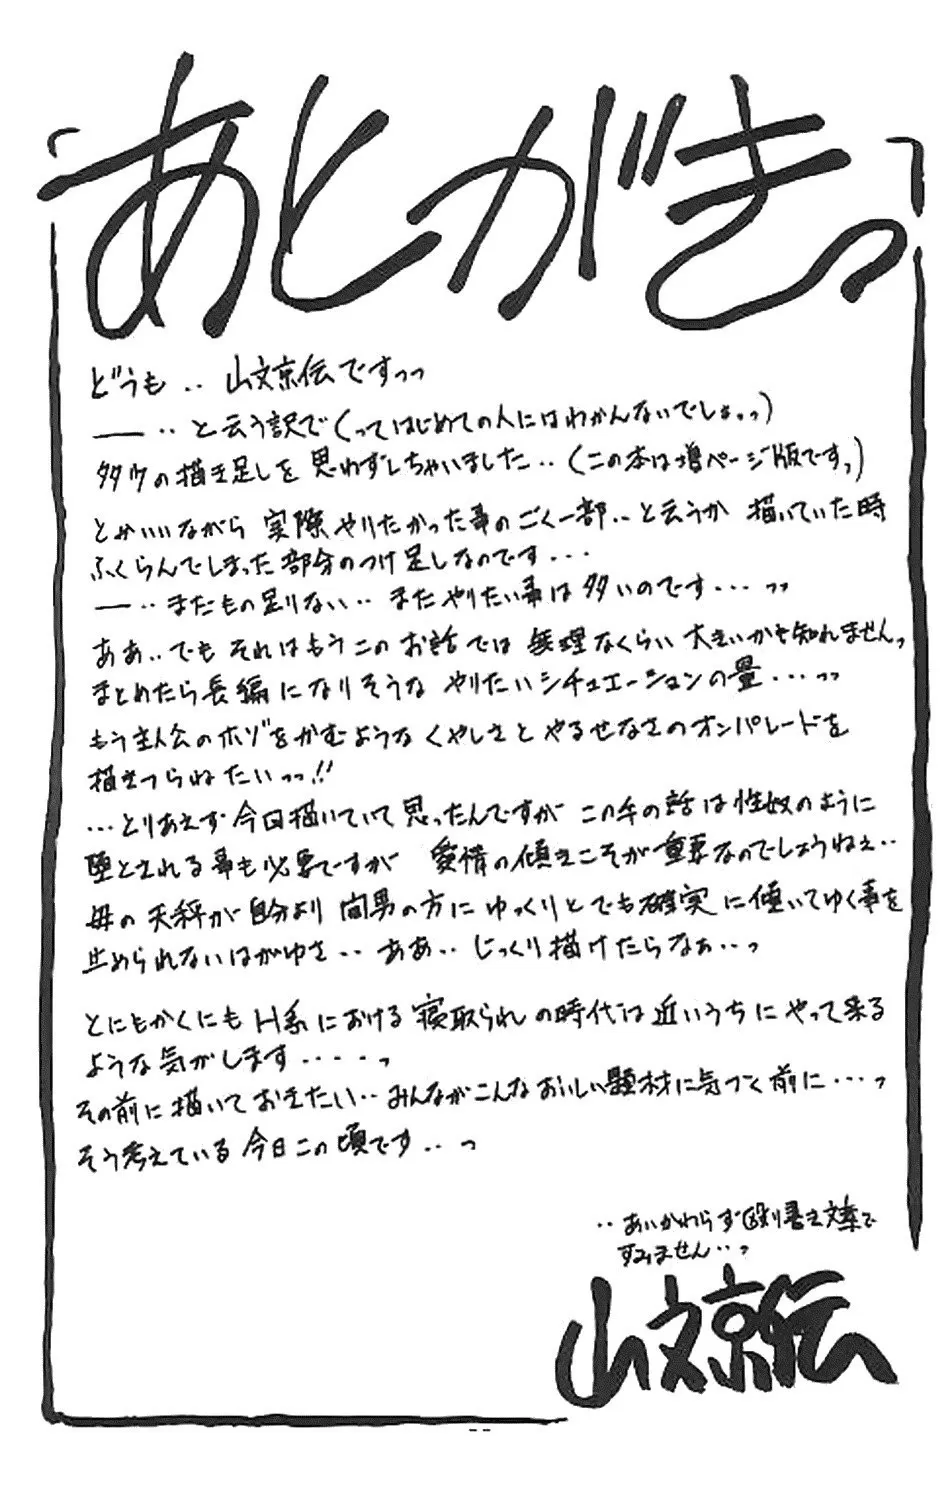 あとがきっ
どうも‥山文京伝ですっっ
―‥と云う訳で(ってはじめての人にはわかんないでしょっっ)
多々の描き足しを思わずしちゃいました‥(この本は増ページ版ですっ)
とかいいながら実際やりたかった事のごく一部‥と云うか描いていた時
ふくらんでしまった部分のつけ足しなのです・・・
―‥まだもの足りない‥まだやりたい事は多いのです・・・っっ
ああ‥でもそれはもうこのお話では無理なくらい大きいかも知れませんっ
まとめたら長編になりそうなやりたいシチュエーションの量・・・っっ
もう主人公のホゾをかむようなくやしさとやるせなさのオンパレードを
描きつらねたいっっ!!
…とりあえず今回描いていて思ったんですがこの手の話は性奴のように
堕とされる事も必要ですが愛情の傾きこそが重要なのでしょうねぇ‥
母の天秤が自分より間男の方にゆっくりとでも確実に傾いてゆく事を
止められないはがゆさ‥ああ‥じっくり描けたらなぁ‥っ
とにもかくにもH系における寝取られの時代は近いうちにやって来る
ような気がします・・・・っ
その前に描いておきたい‥みんながこんなおいしい題材に気づく前に・・・っ
そう考えている今日この頃です‥っ
‥あいかわらず殴り書き文章で
すみません‥っ
山文京伝